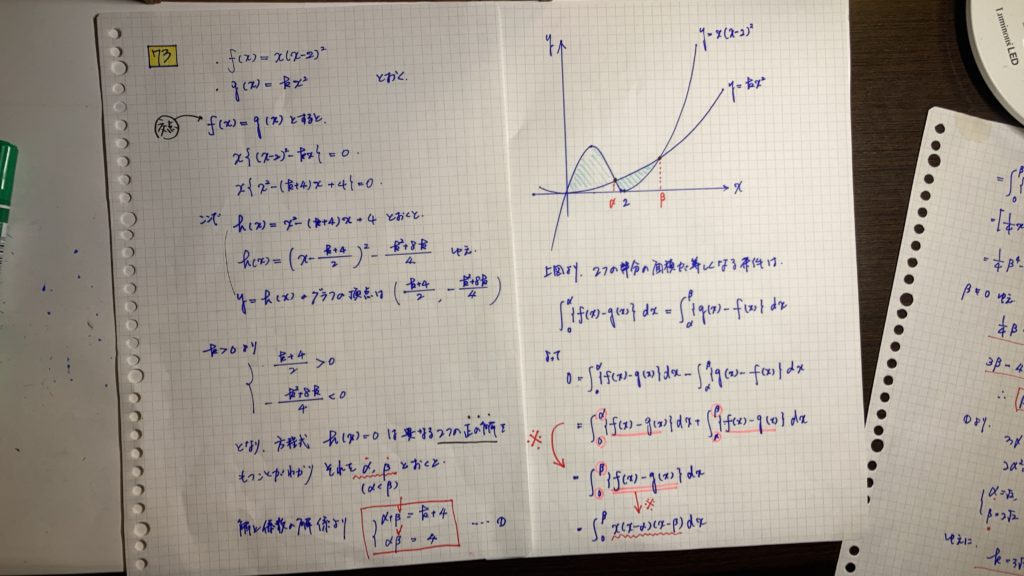 73
・f(x) = x(x-2)²
・g(x) = kx² とおく.
交点 f(x) = g(x) とすると.
x{(x-2)² - kx} = 0.
x{x² - (k+4)x + 4} = 0.
ここで h(x) = x² - (k+4)x + 4 とおくと.
h(x) = (x - (k+4)/2)² - (k²+8k)/4 ゆえ.
y = h(x) のグラフの頂点は ((k+4)/2, -(k²+8k)/4)
k>0 より
{ (k+4)/2 > 0
-(k²+8k)/4 < 0
となり, 方程式 h(x) = 0 は異なる2つの正の解を
もつことがわかり それを α, β とおくと.
(α<β)
解と係数の関係より { α+β = k+4
αβ = 4 ---- ①
y
y = x(x-2)²
y = kx²
α 2 β x
上図より, 2つの部分の面積が等しくなる条件は.
∫₀^α {f(x)-g(x)} dx = ∫_α^β {g(x)-f(x)} dx
よって
0 = ∫₀^α {f(x)-g(x)} dx - ∫_α^β {g(x)-f(x)} dx
※ = ∫₀^α {f(x)-g(x)} dx + ∫_α^β {f(x)-g(x)} dx
= ∫₀^β {f(x)-g(x)} dx
※
= ∫₀^β x(x-α)(x-β) dx
Luminous LED
= ∫₀^β
= [1/4 x
= 1/4 β⁴ -
β≠0 ゆえ
1/4 β
3β - 4
∴
①より.
3α
2α²
{ α = √2
β = 2√2
ゆえに.
k = 3√2